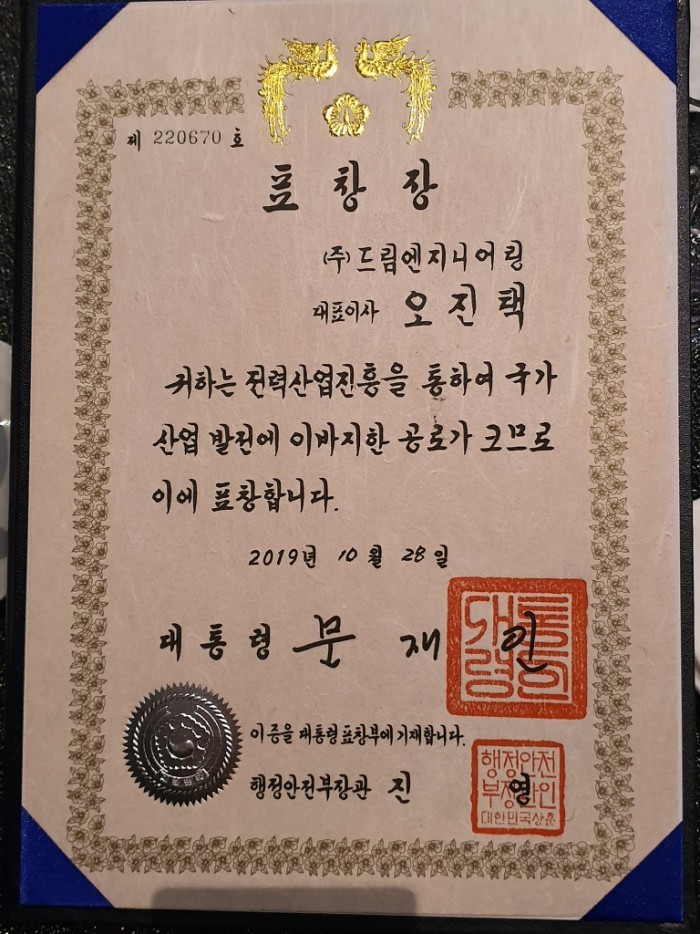 제 220670 호
표창장
(주)드림엔지니어링
대표이사 오진택
귀하는 전력산업진흥을 통하여 국가
산업 발전에 이바지한 공로가 크므로
이에 표창합니다.
2019년 10월 28일
대통령 문재인
대통령의인
이 증을 대통령표창부에 기재합니다.
행정안전부장관 진영
행정안전
부장관인
대한민국상훈